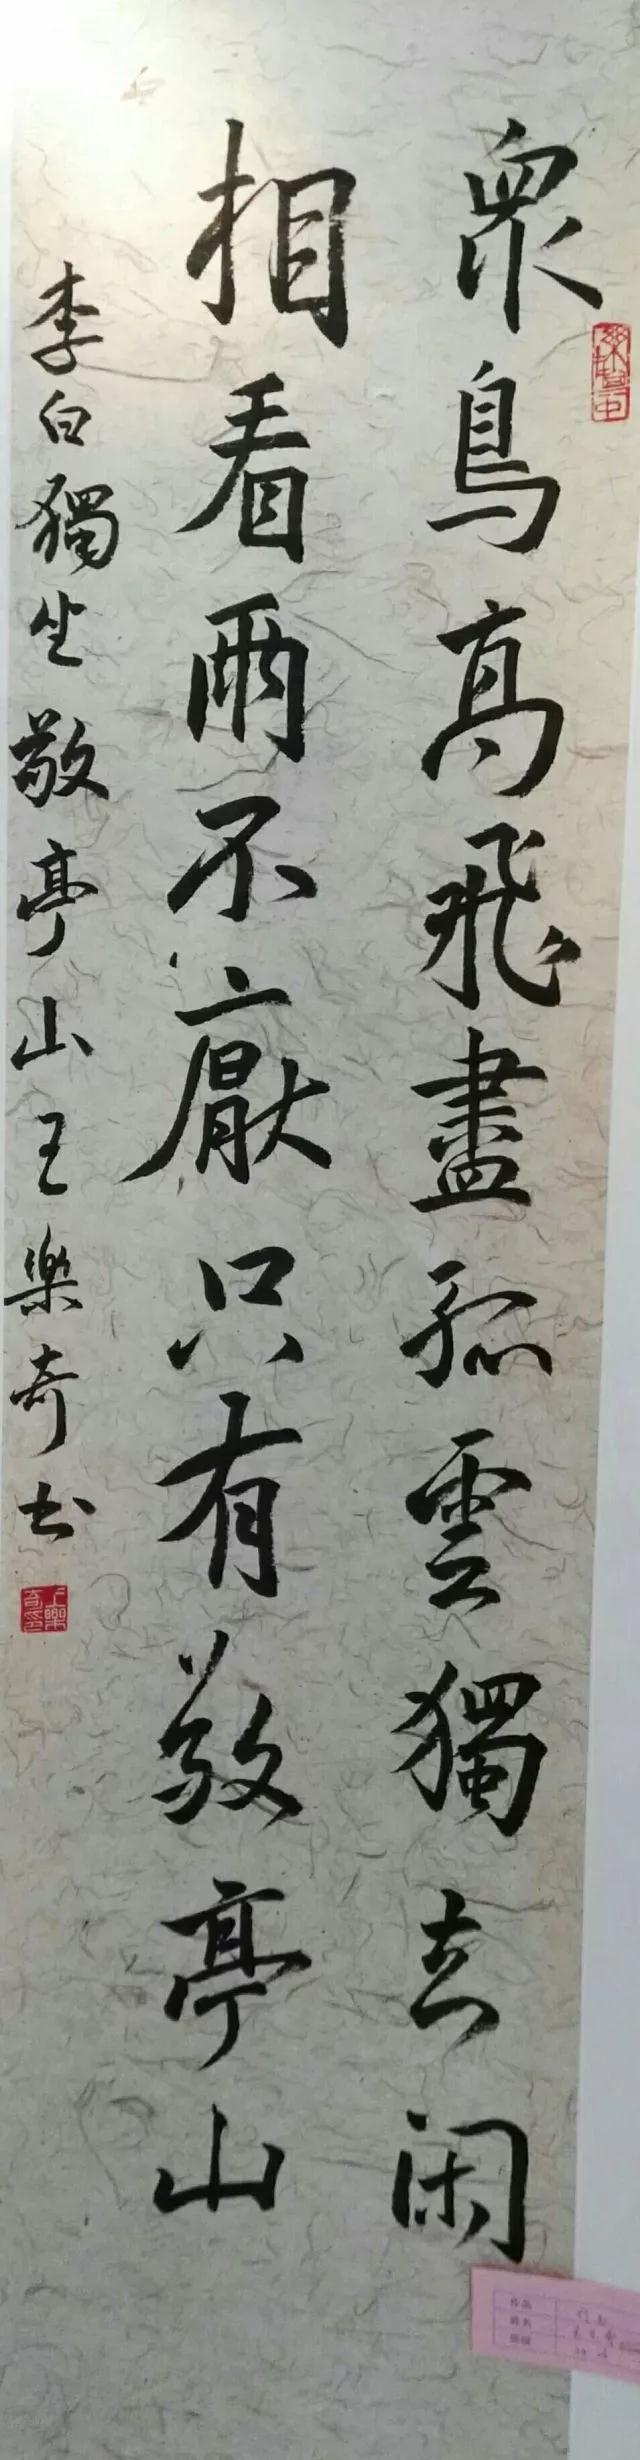 眾鳥高飛盡孤雲獨去闲
相看兩不厭只有敬亭山
李白獨坐敬亭山王樂奇书